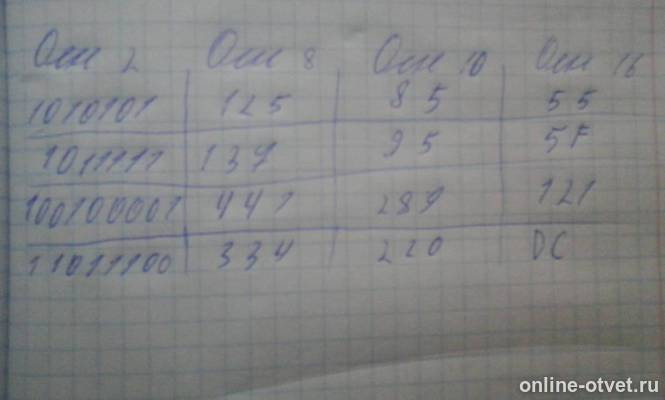 Осн 2 Осн 8 Осн 10 Осн 16
1010101 125 85 55
1011111 137 95 5F
100100001 441 289 121
11011100 334 220 DC
online-otvet.ru